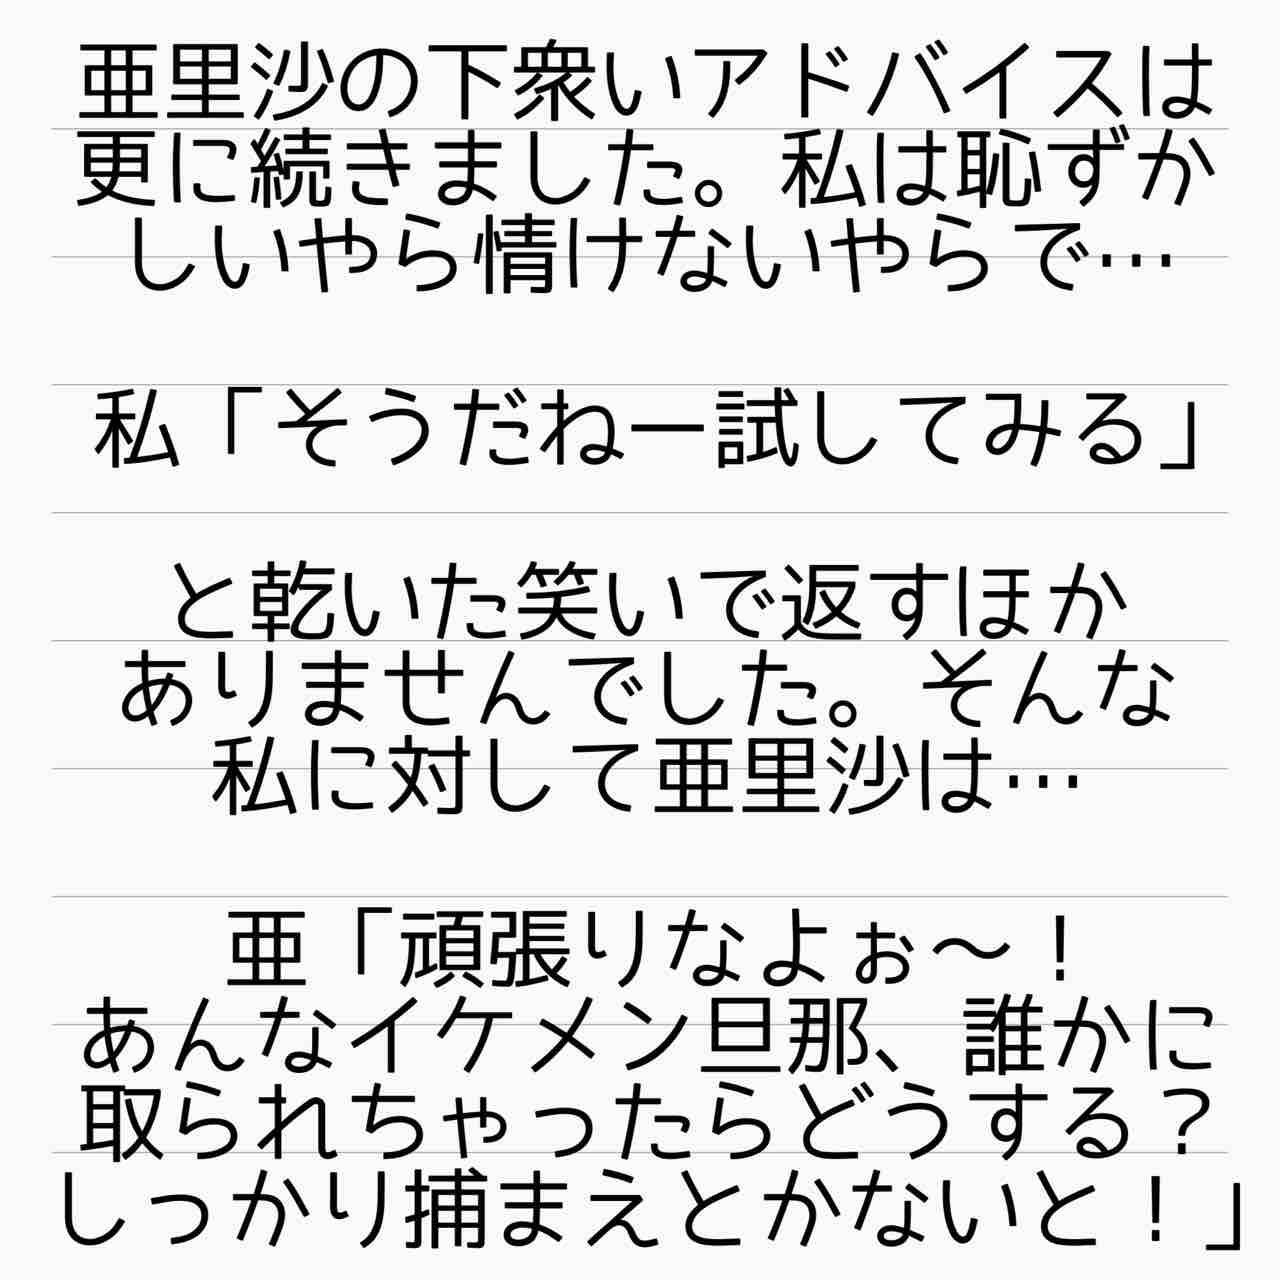 亜里沙の下衆いアドバイスは
更に続きました。私は恥ずか
しいやら情けないやらで…
私「そうだねー試してみる」
と乾いた笑いで返すほか
ありませんでした。そんな
私に対して亜里沙は…
亜「頑張りなよぉ〜！
あんなイケメン旦那、誰かに
取られちゃったらどうする？
しっかり捕まえとかないと！」